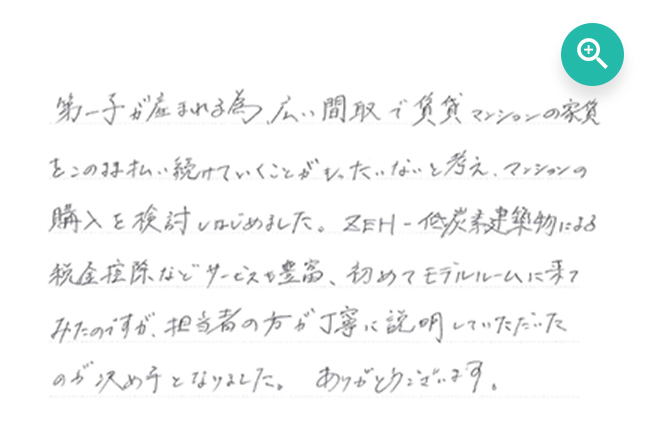 第一子が産まれる為、広い間取で賃貸マンションの家賃
をこのまま払い続けていくことがもったいないと考え、マンションの
購入を検討しはじめました。ZEH-低炭素建築物による
税金控除などサービスも豊富、初めてモデルルームに来て
みたのですが、担当者の方が丁寧に説明していただいた
のが決め手となりました。 ありがとうございます。